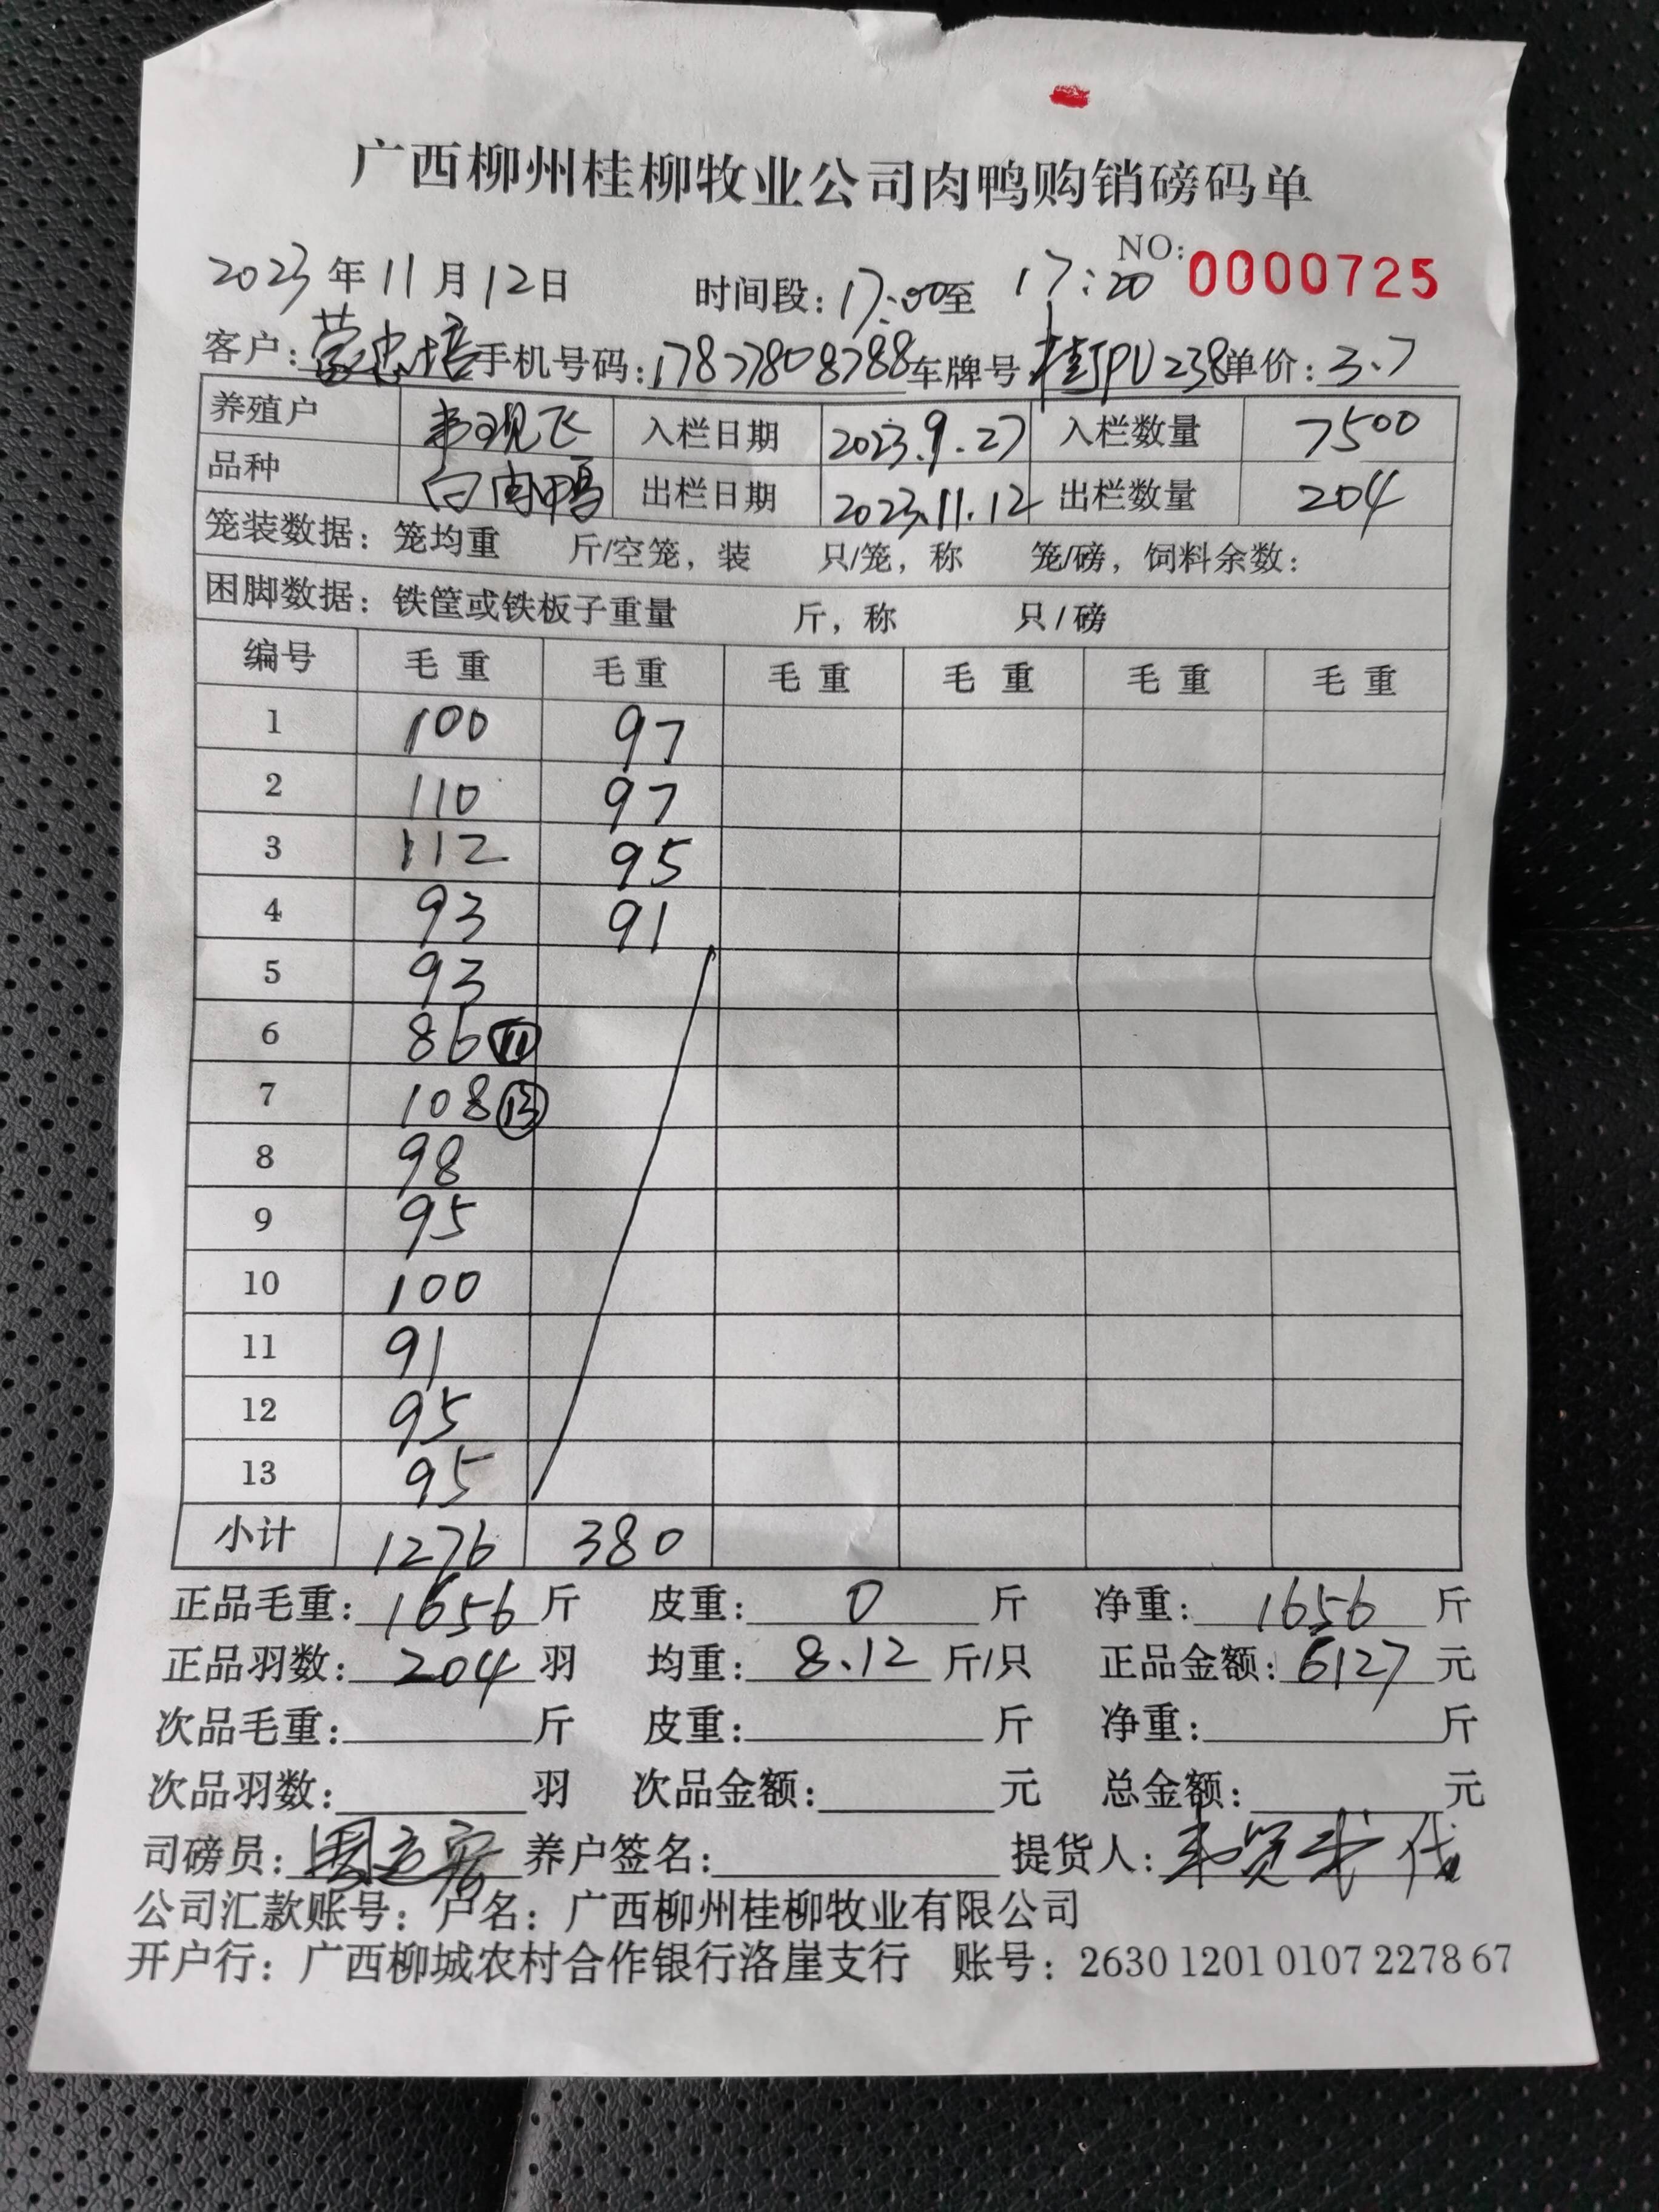 广西柳州桂柳牧业公司肉鸭购销磅码单
NO: 0000725
2023年11月12日 时间段: 17:00至 17:20
客户: 蒙忠培 手机号码: 17877808788 车牌号 桂JPU238 单价: 3.7
养殖户 韦现飞 入栏日期 2023.9.27 入栏数量 7500
品种 白肉鸭 出栏日期 2023.11.12 出栏数量 204
笼装数据: 笼均重 斤/空笼, 装 只/笼, 称 笼/磅, 饲料余数:
困脚数据: 铁筐或铁板子重量 斤, 称 只/磅
编号 毛重 毛重 毛重 毛重 毛重 毛重
1 100 97
2 110 97
3 112 95
4 93 91
5 93
6 86 ⑪
7 108 ⑬
8 98
9 95
10 100
11 91
12 95
13 95
小计 1276 380
正品毛重: 1656 斤 皮重: 0 斤 净重: 1656 斤
正品羽数: 204 羽 均重: 8.12 斤/只 正品金额: 6127 元
次品毛重: 斤 皮重: 斤 净重: 斤
次品羽数: 羽 次品金额: 元 总金额: 元
司磅员: 养户签名: 提货人: 代
公司汇款账号: 户名: 广西柳州桂柳牧业有限公司
开户行: 广西柳城农村合作银行洛崖支行 账号: 2630 1201 0107 2278 67